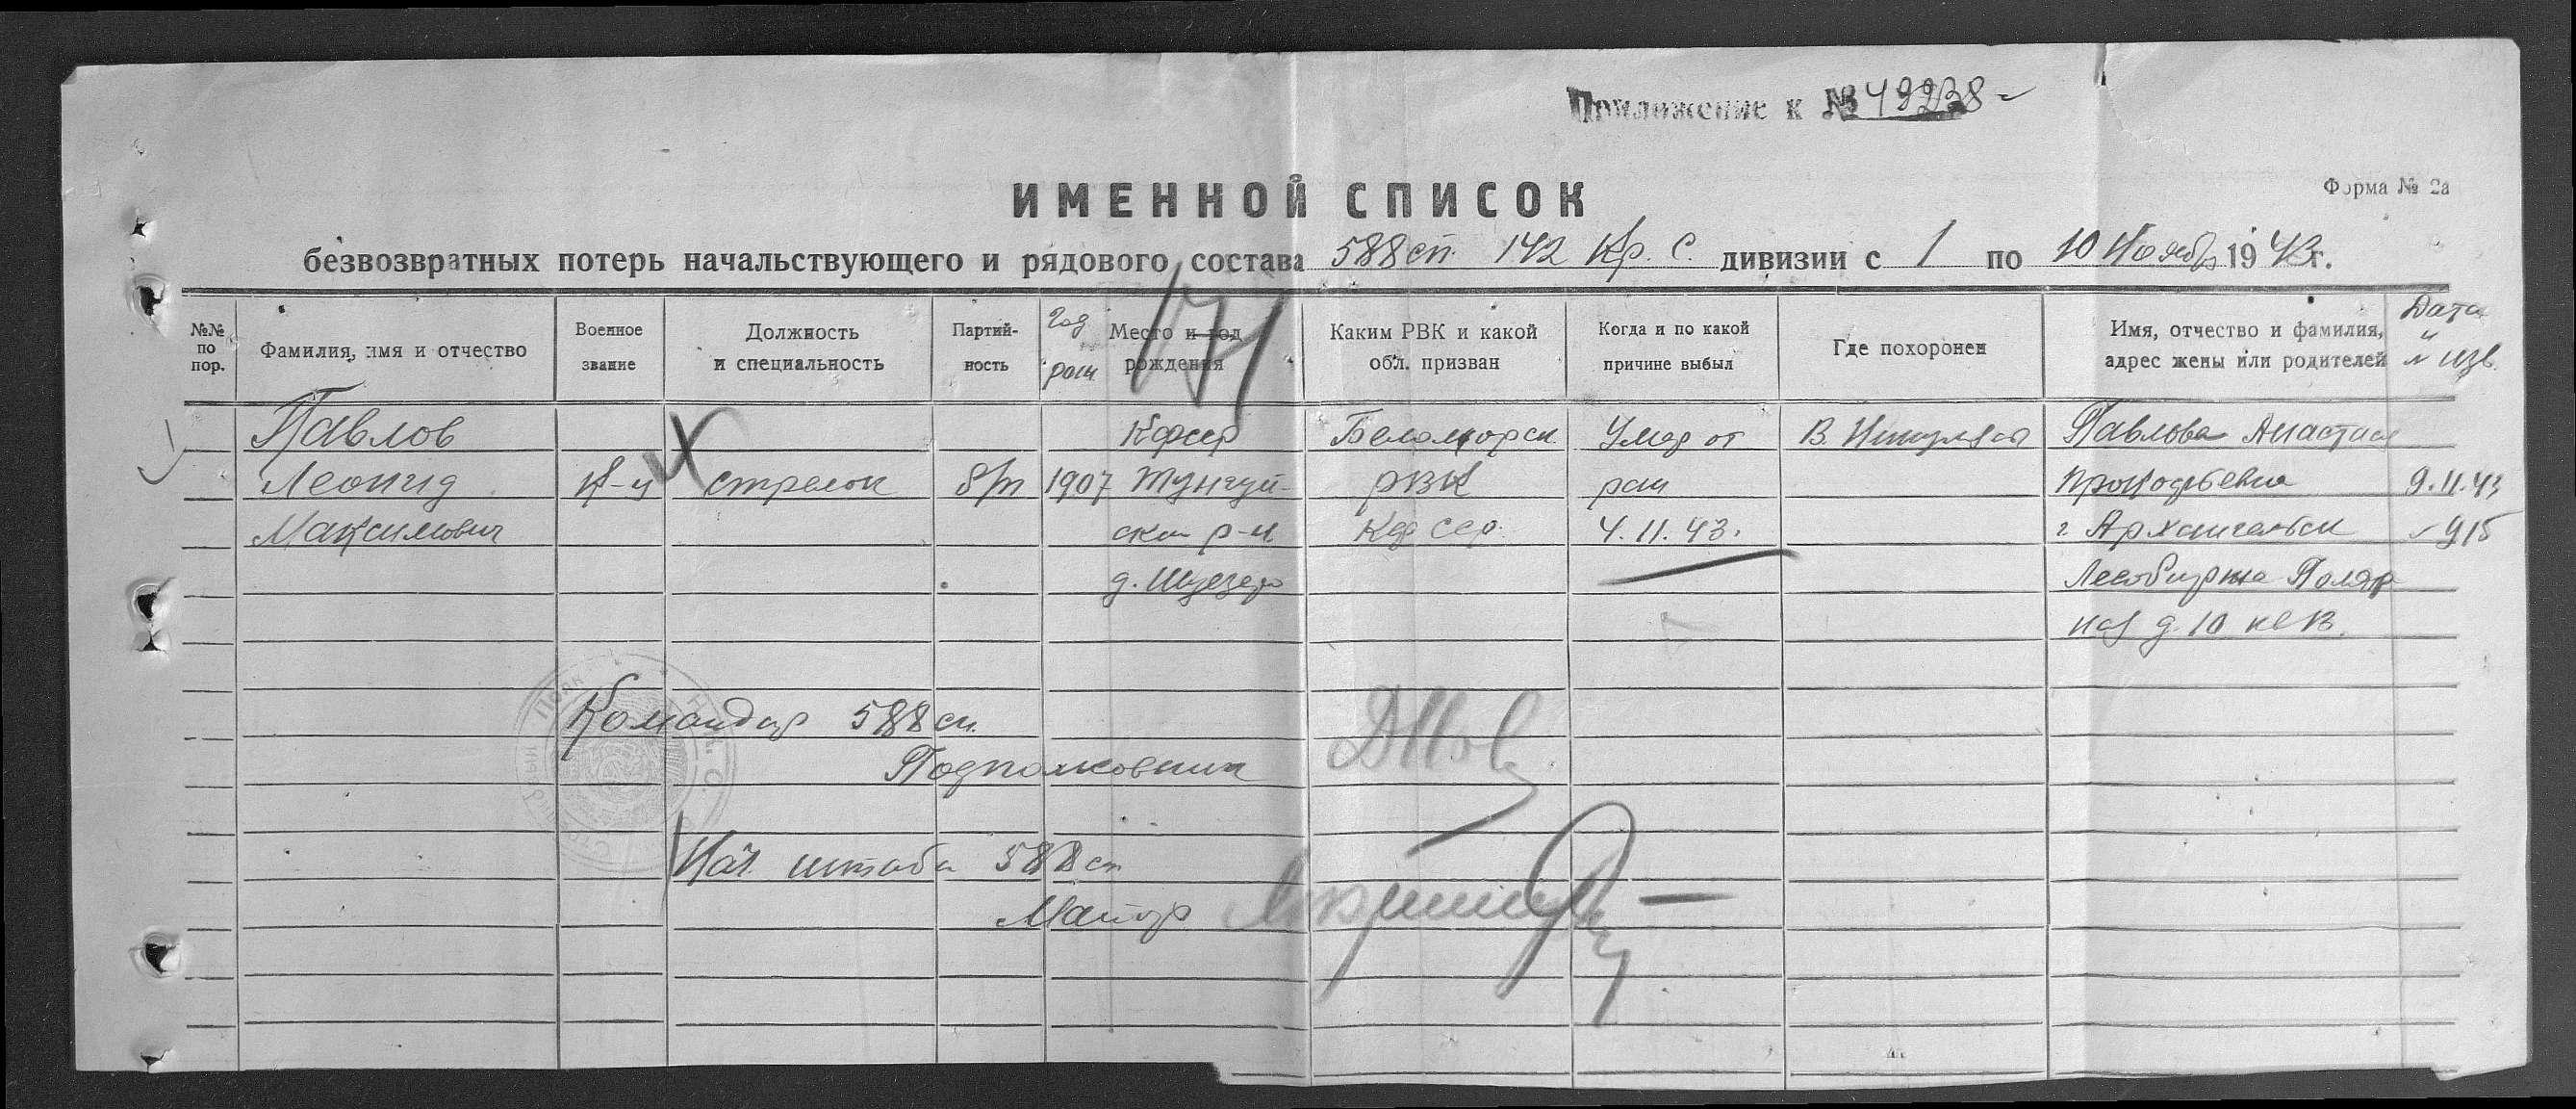 Приложение к № 49238
Форма № 2а
ИМЕННОЙ СПИСОК
безвозвратных потерь начальствующего и рядового состава 588 сп. 142 Кр. С. дивизии с 1 по 10 Ноябр 1943 г.
№№ по пор.
Фамилия, имя и отчество
Военное звание
Должность и специальность
Партий-ность
Год рож
Место и год рождения
Каким РВК и какой обл. призван
Когда и по какой причине выбыл
Где похоронен
Имя, отчество и фамилия, адрес жены или родителей
Дата и № изв.
171
Павлов Кфсср Беломорск Умер от Павлова Анастас
Леонид к-ц стрелок б/п 1907 Тунгуд- РВК ран Прокофьевна 9.11.43
Максимович ски р-н. Кф сср. 4.11.43. г Архангельск 915
д. Шуезеро Лесобиржа Поляр
наз д. 10 кв 13.
Командир 588 сп.
Подполковник
Нач штаба 588 сп
Майор